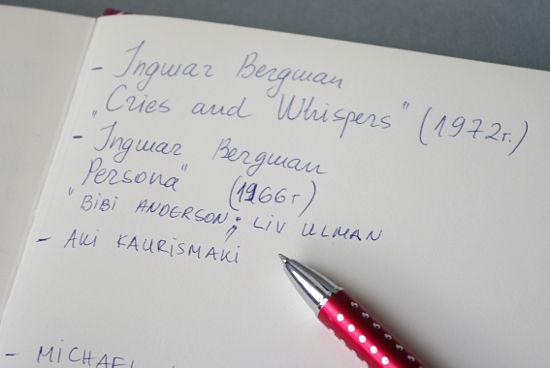 - Ingmar Bergman
„Cries and Whispers" (1972г.)
- Ingmar Bergman
Persona" (1966г)
"BIBI ANDERSON; LIV ULMAN
- AKI KAURISMAKI
- MICHAEL